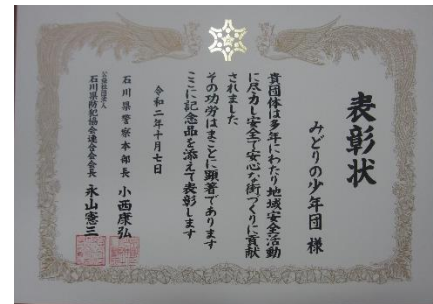 表彰状
みどりの少年団 様
貴団体は多年にわたり地域安全活動
に尽力し安全で安心な街づくりに貢献
されました
その功労はまことに顕著であります
ここに記念品を添えて表彰します
令和二年十月七日
石川県警察本部長 小西康弘
公益社団法人
石川県防犯協会連合会会長 永山憲三